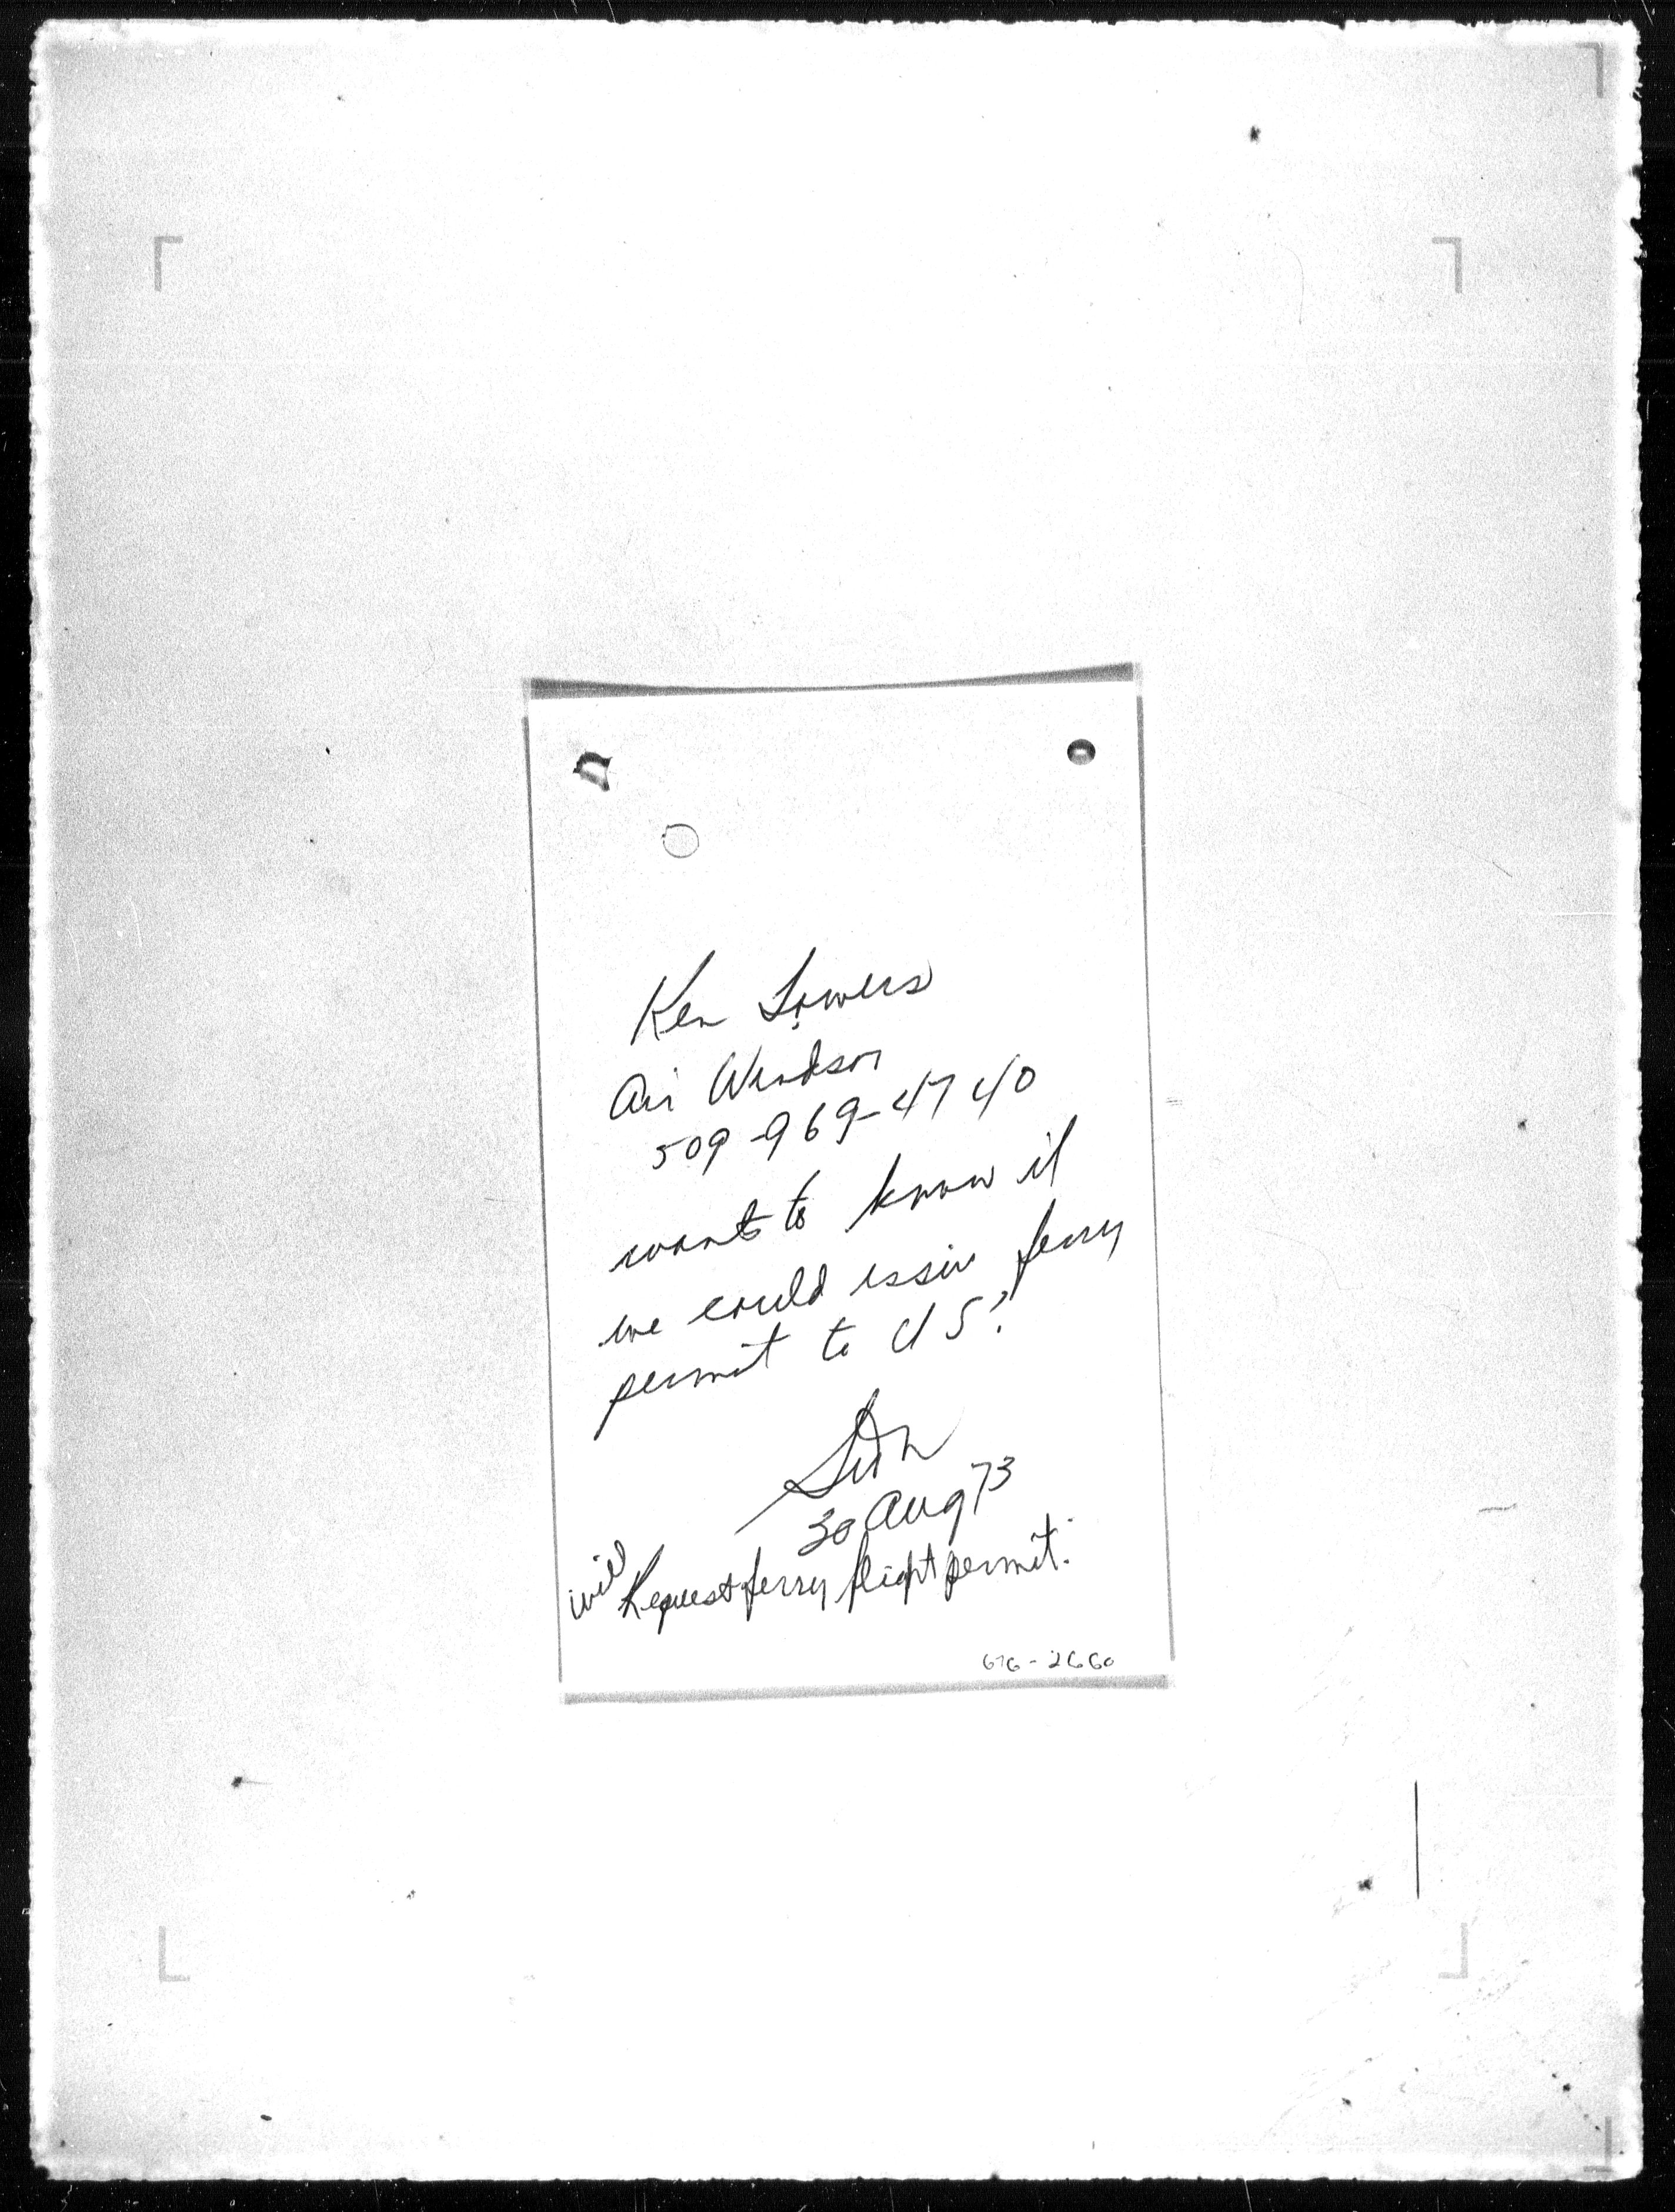 Ken Lowers
Air Windsor
509-969-4740
wants to know if
we could issue ferry
permit to US?
30 Aug 73
will Request ferry flight permit.
676-2660